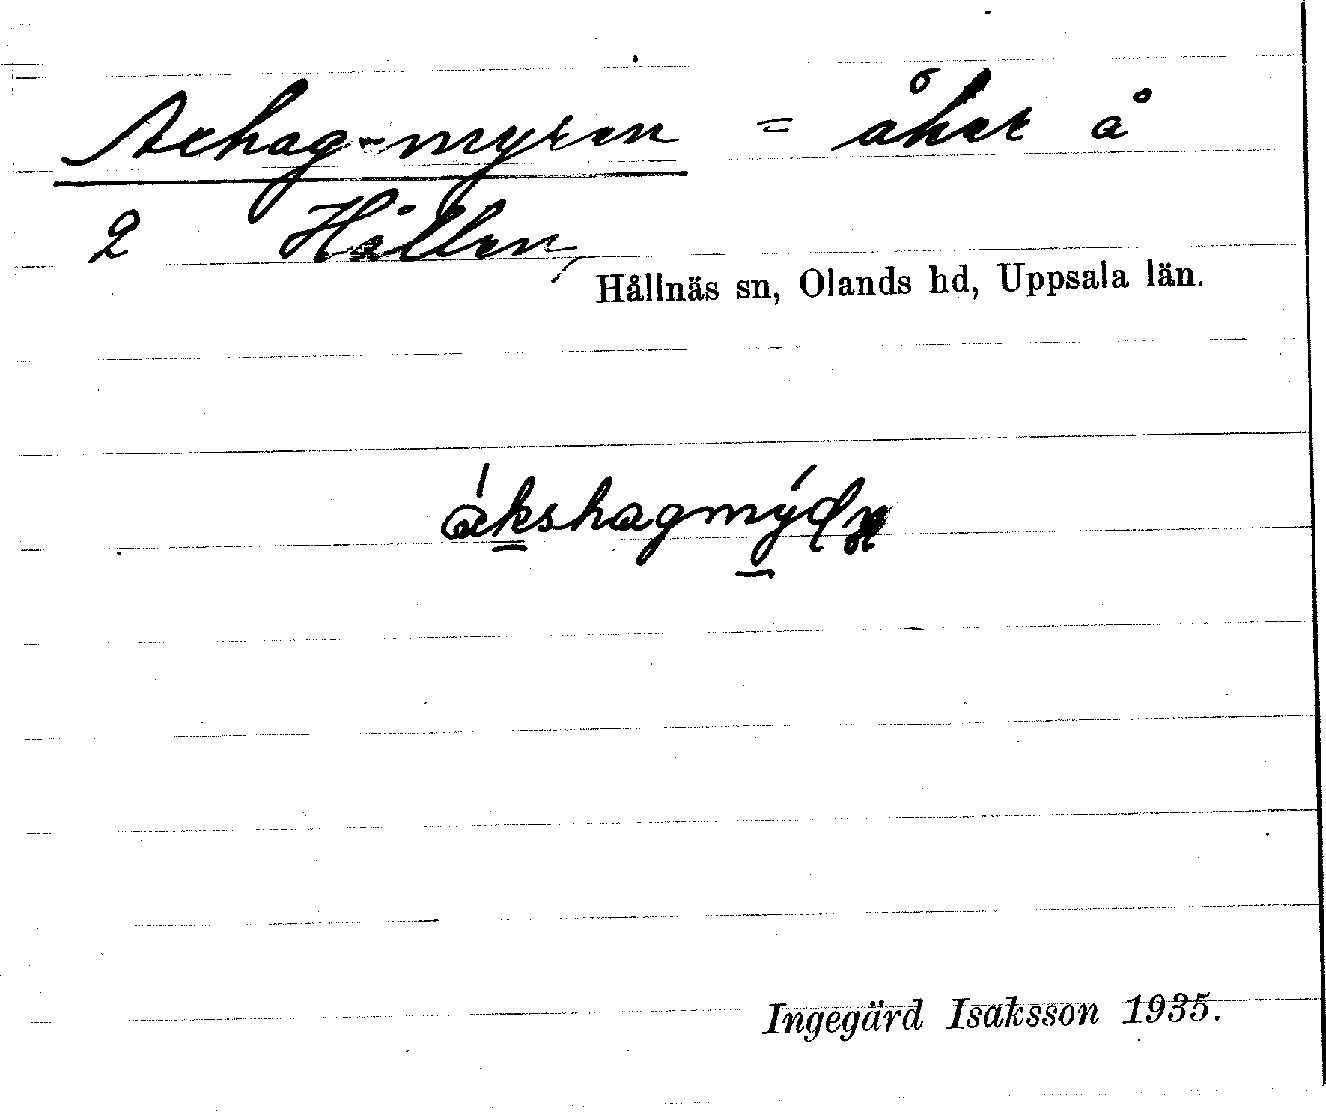 Axhag-myren = åker å
2 Hållen,
Hållnäs sn, Olands hd, Uppsala län.
Ingegärd Isaksson 1935.